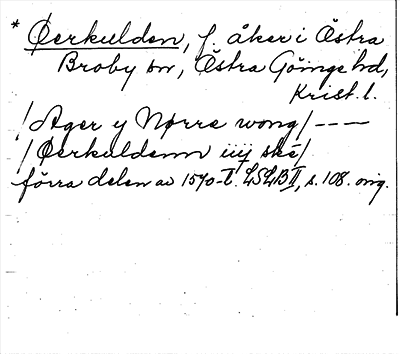 * Øerkulden, f. åker i Östra
Broby sn, Östra Göinge hd,
Krist. l.
/Ager y Nørre wong/ ----
/Øerkuldenn iiij ske/
förra delen av 1570-t. LSLB II, s. 108. orig.